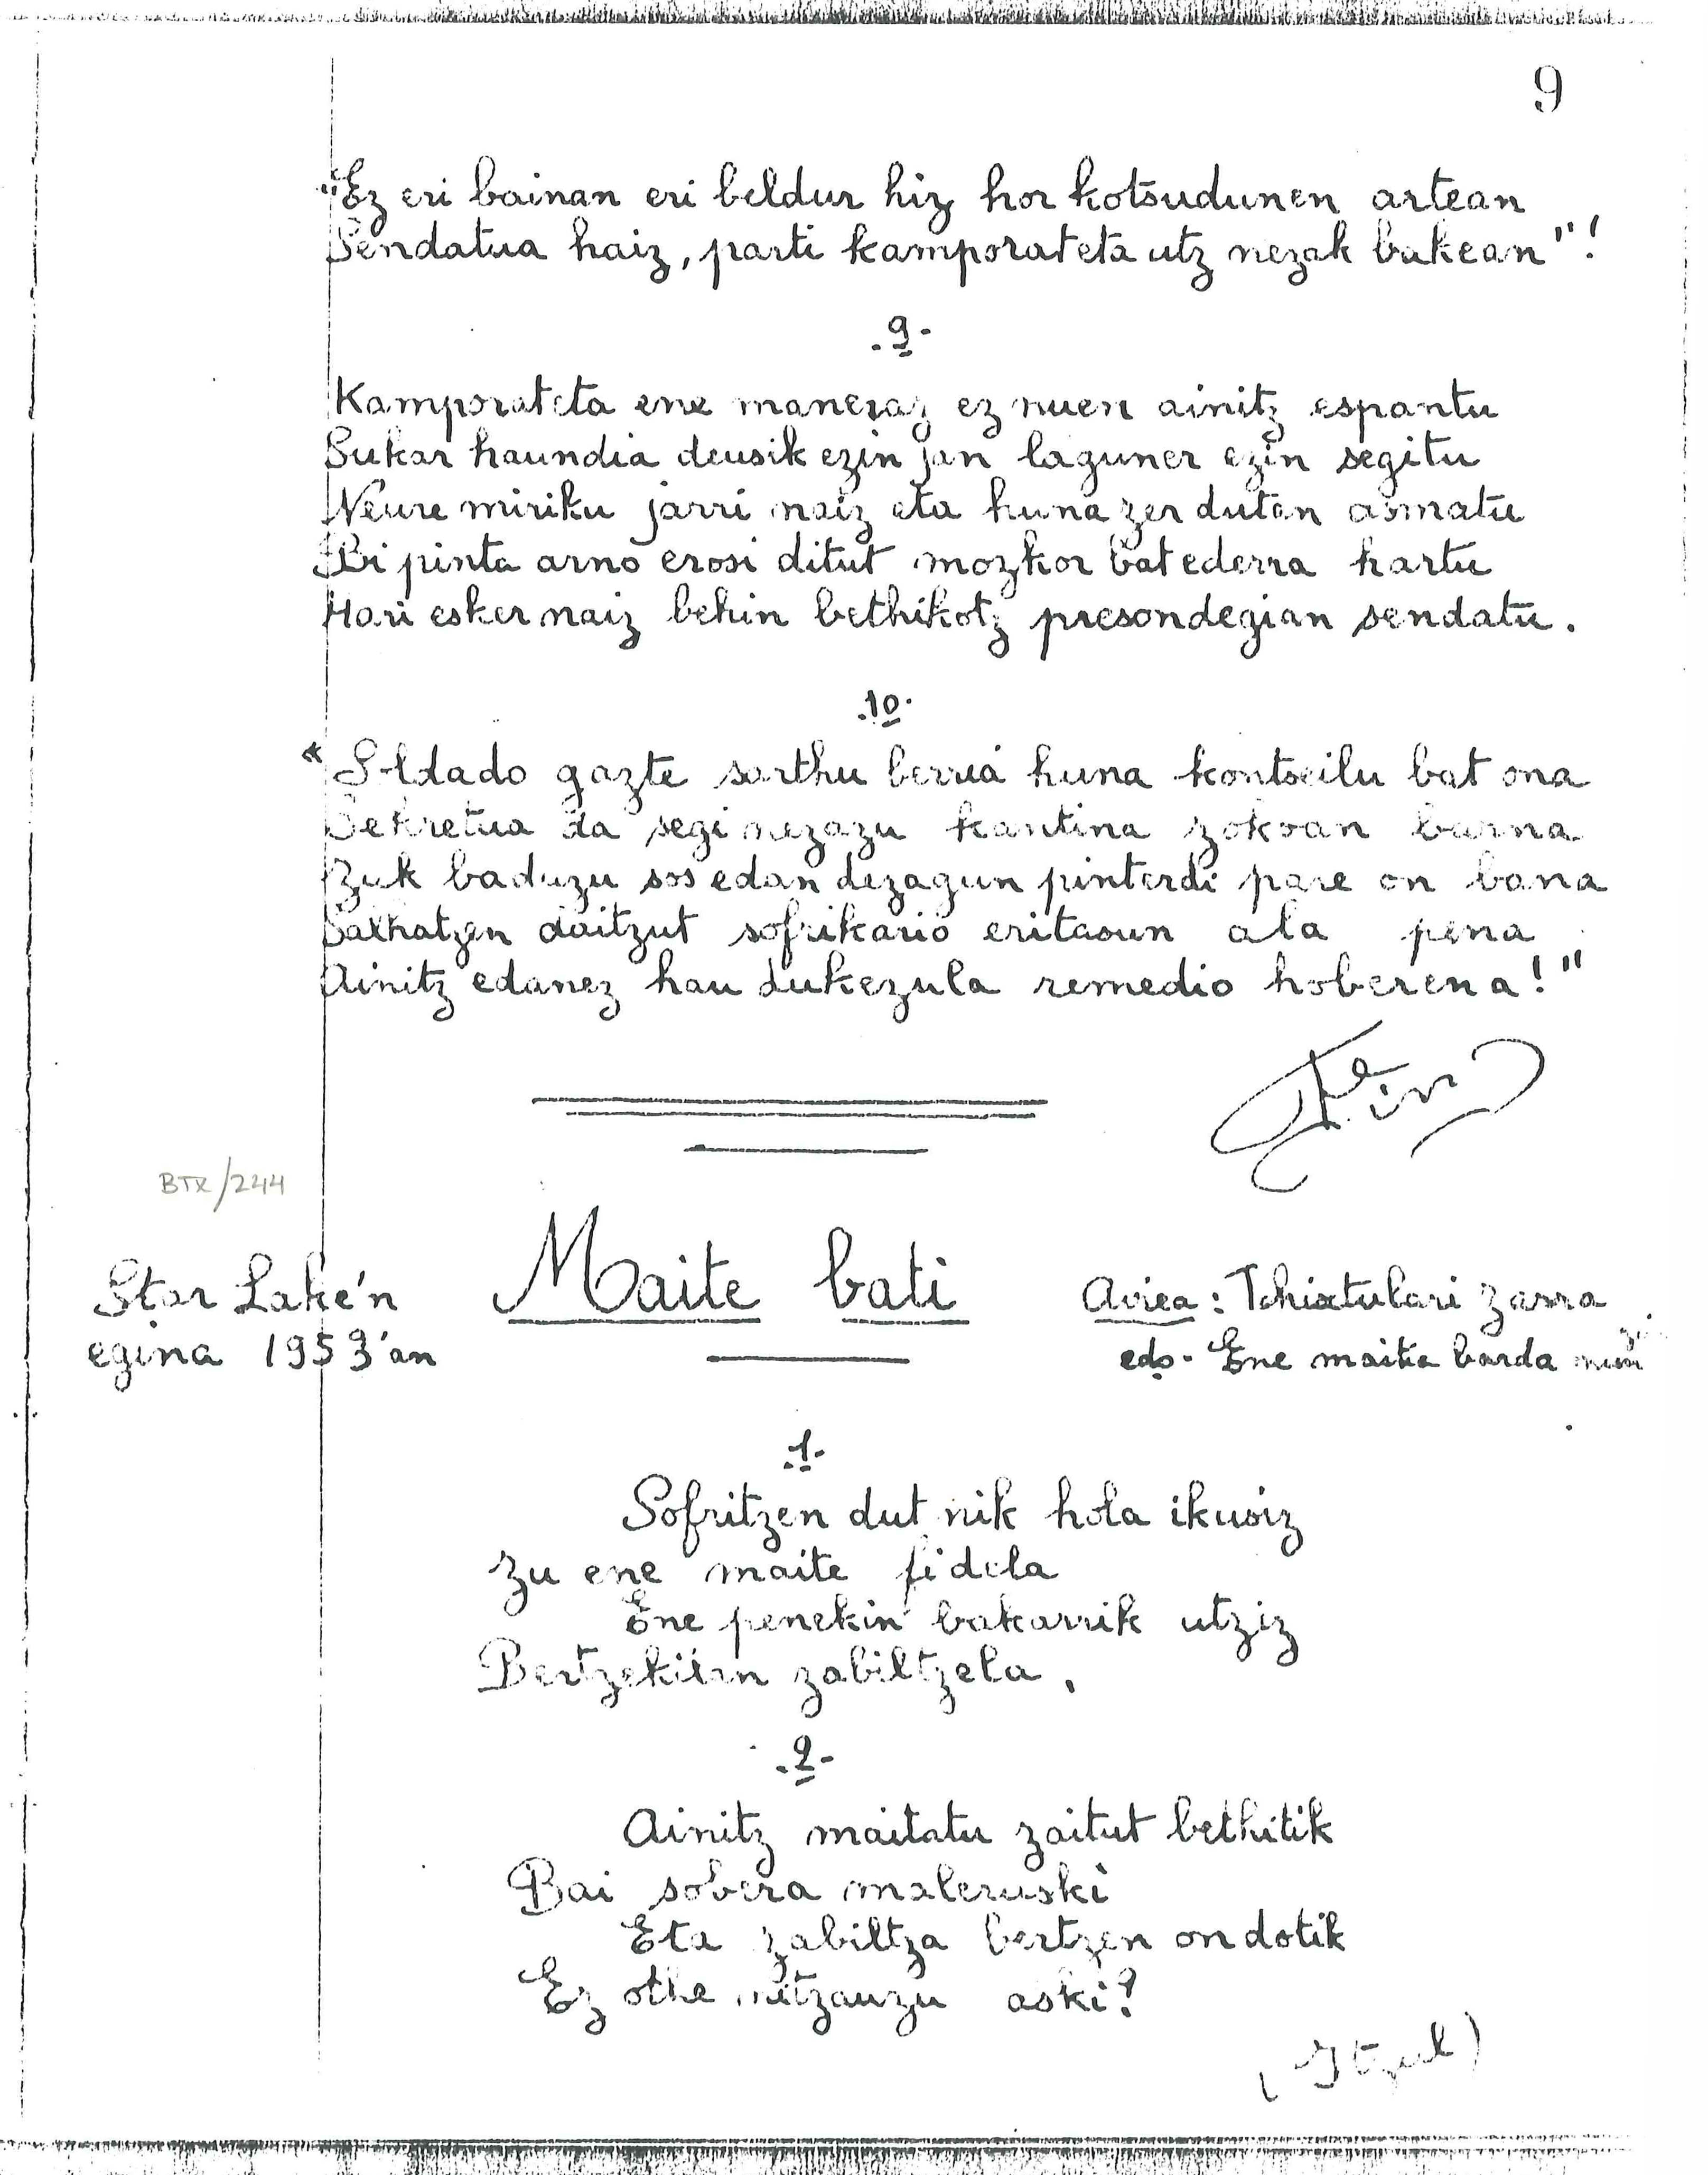 9
"Ez eri bainan eri beldur hiz hor kotsudunen artean
Sendatua haiz, parti kamporat eta utz nezak bakean"!
.9-
Kamporat eta ene maneraz ez nuen ainitz espantu
Sukar haundia deusik ezin jan laguner ezin segitu
Neure miriku jarri naiz eta huna zer duten asmatu
Bi pinta arno erosi ditut mozkor bat ederra hartu
Hari esker naiz behin bethikotz presondegian sendatu.
.10.
"Soldado gazte sarthu berria huna kontseilu bat ona
Sekretua da segi nezazu kantina zokoan barna
Zuk baduzu sos edan dezagun pinterdi pare on bana
Salhatzen daitzut sofrikario eritasun ala pena
Ainitz edanez hau dukezula remedio hoberena!"
Fin
BTX/244
Star Lake'n
egina 1953'an
Maite bati
Airea: Tchistulari zarra
edo- Ene maitia barda
.1-
Sofritzen dut nik hola ikusiz
Zu ene maite fidela
Ene penekin bakarrik utziz
Bertzekilan zabiltzela,
.2-
Ainitz maitatu zaitut bethitik
Bai sobera maleruski
Eta zabiltza bertzen ondotik
Ez othe nitzauzu aski?
(Itzul)